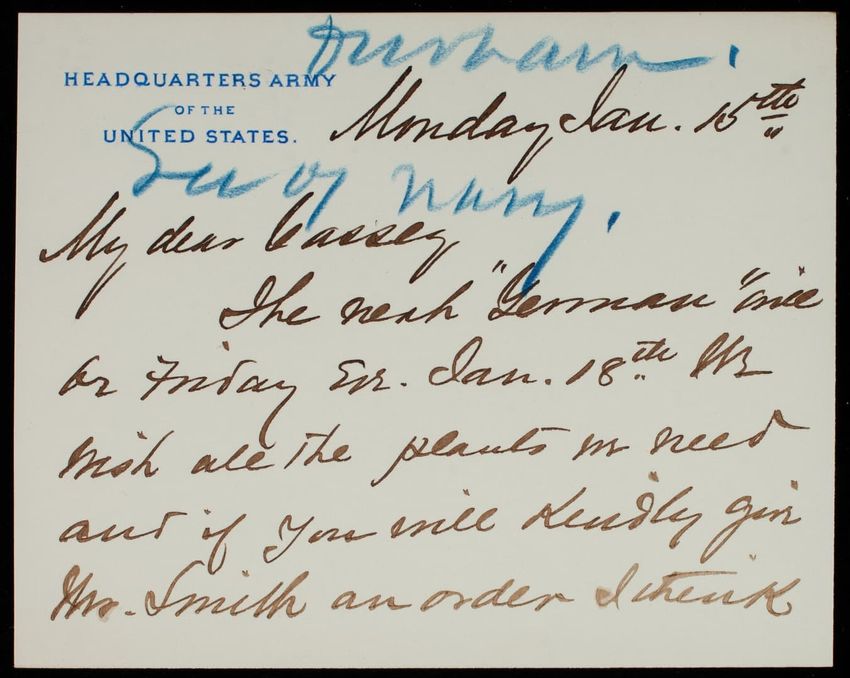 Durham.
HEADQUARTERS ARMY
OF THE
UNITED STATES.
Monday Jan. 15th
Sec of Navy.
My dear Cassey
The next "German" will
be Friday Eve. Jan. 18th We
wish all the plants we need
and if you will kindly give
Mr. Smith an order I think